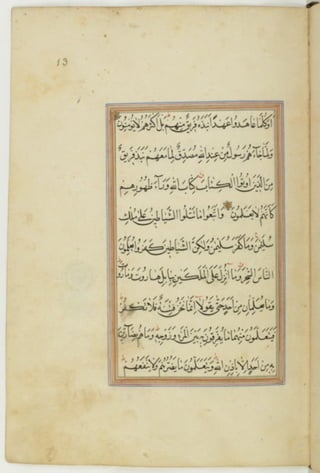 13
اوكلما عاهدوا عهدا نبذه فريق منهم بل اكثرهم لا يؤمنون
ولما جاءهم رسول من عند الله مصدق لما معهم نبذ فريق
من الذين اوتوا الكتاب كتاب الله وراء ظهورهم
كانهم لا يعلمون واتبعوا ما تتلوا الشياطين على ملك
سليمن وما كفر سليمن ولكن الشياطين كفروا يعلمون
الناس السحر وما انزل على الملكين ببابل هاروت وماروت
وما يعلمان من احد حتى يقولا انما نحن فتنة فلا تكفر
فيتعلمون منهما ما يفرقون به بين المرء وزوجه وما هم بضارين
به من احد الا باذن الله ويتعلمون ما يضرهم ولا ينفعهم